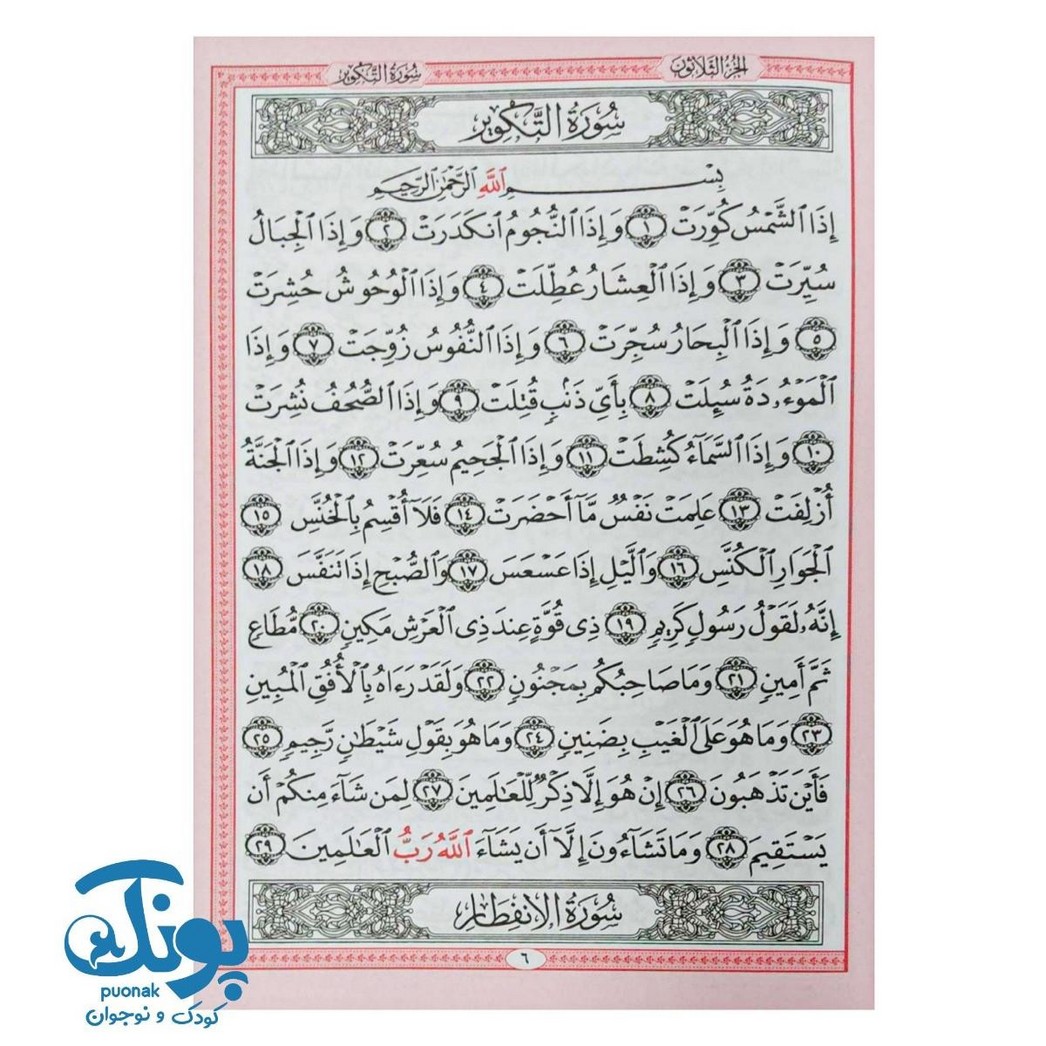 الجزء الثلاثون
سورة التكوير
سُورَةُ التَّكْوِيرِ
بِسْمِ ٱللَّهِ ٱلرَّحْمَٰنِ ٱلرَّحِيمِ
إِذَا ٱلشَّمْسُ كُوِّرَتْ ١ وَإِذَا ٱلنُّجُومُ ٱنكَدَرَتْ ٢ وَإِذَا ٱلْجِبَالُ
سُيِّرَتْ ٣ وَإِذَا ٱلْعِشَارُ عُطِّلَتْ ٤ وَإِذَا ٱلْوُحُوشُ حُشِرَتْ
٥ وَإِذَا ٱلْبِحَارُ سُجِّرَتْ ٦ وَإِذَا ٱلنُّفُوسُ زُوِّجَتْ ٧ وَإِذَا
ٱلْمَوْءُۥدَةُ سُئِلَتْ ٨ بِأَىِّ ذَنۢبٍ قُتِلَتْ ٩ وَإِذَا ٱلصُّحُفُ نُشِرَتْ
١٠ وَإِذَا ٱلسَّمَآءُ كُشِطَتْ ١١ وَإِذَا ٱلْجَحِيمُ سُعِّرَتْ ١٢ وَإِذَا ٱلْجَنَّةُ
أُزْلِفَتْ ١٣ عَلِمَتْ نَفْسٌ مَّآ أَحْضَرَتْ ١٤ فَلَآ أُقْسِمُ بِٱلْخُنَّسِ ١٥
ٱلْجَوَارِ ٱلْكُنَّسِ ١٦ وَٱلَّيْلِ إِذَا عَسْعَسَ ١٧ وَٱلصُّبْحِ إِذَا تَنَفَّسَ ١٨
إِنَّهُۥ لَقَوْلُ رَسُولٍ كَرِيمٍ ١٩ ذِى قُوَّةٍ عِندَ ذِى ٱلْعَرْشِ مَكِينٍ ٢٠ مُّطَاعٍ
ثَمَّ أَمِينٍ ٢١ وَمَا صَاحِبُكُم بِمَجْنُونٍ ٢٢ وَلَقَدْ رَءَاهُ بِٱلْأُفُقِ ٱلْمُبِينِ
٢٣ وَمَا هُوَ عَلَى ٱلْغَيْبِ بِضَنِينٍ ٢٤ وَمَا هُوَ بِقَوْلِ شَيْطَٰنٍ رَّجِيمٍ ٢٥
فَأَيْنَ تَذْهَبُونَ ٢٦ إِنْ هُوَ إِلَّا ذِكْرٌ لِّلْعَٰلَمِينَ ٢٧ لِمَن شَآءَ مِنكُمْ أَن
يَسْتَقِيمَ ٢٨ وَمَا تَشَآءُونَ إِلَّآ أَن يَشَآءَ ٱللَّهُ رَبُّ ٱلْعَٰلَمِينَ ٢٩
سُورَةُ الِانفِطَارِ
٦
پونک
puonak
کودک و نوجوان